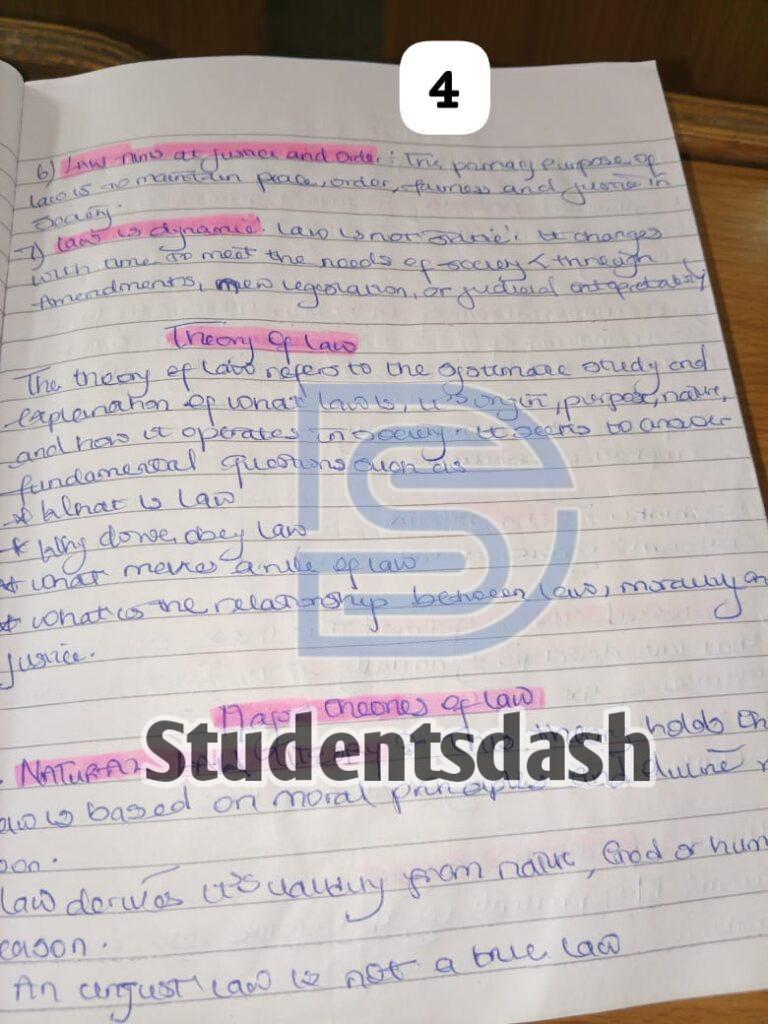 4
6) Law Aims at Justice and Order: The primary purpose of
law is to maintain peace, order, fairness and justice in
society.
7) Law is dynamic: Law is not static. It changes
with time to meet the needs of society through
Amendments, new legislation, or judicial
Theory of Law
The theory of Law refers to the systematic study and
explanation of what law is, it's origin, purpose, nature,
and how it operates in society. It seeks to answer
fundamental questions such as
* What is Law
* Why do we obey Law
* What makes a rule of law
* what is the relationship between law, morality an
justice.
Major theories of Law
NATURAL holds th
aw is based on moral principles and divine r
son.
Law derives it's validity from nature, God or hum
eason.
An unjust law is not a true law
Studentsdash